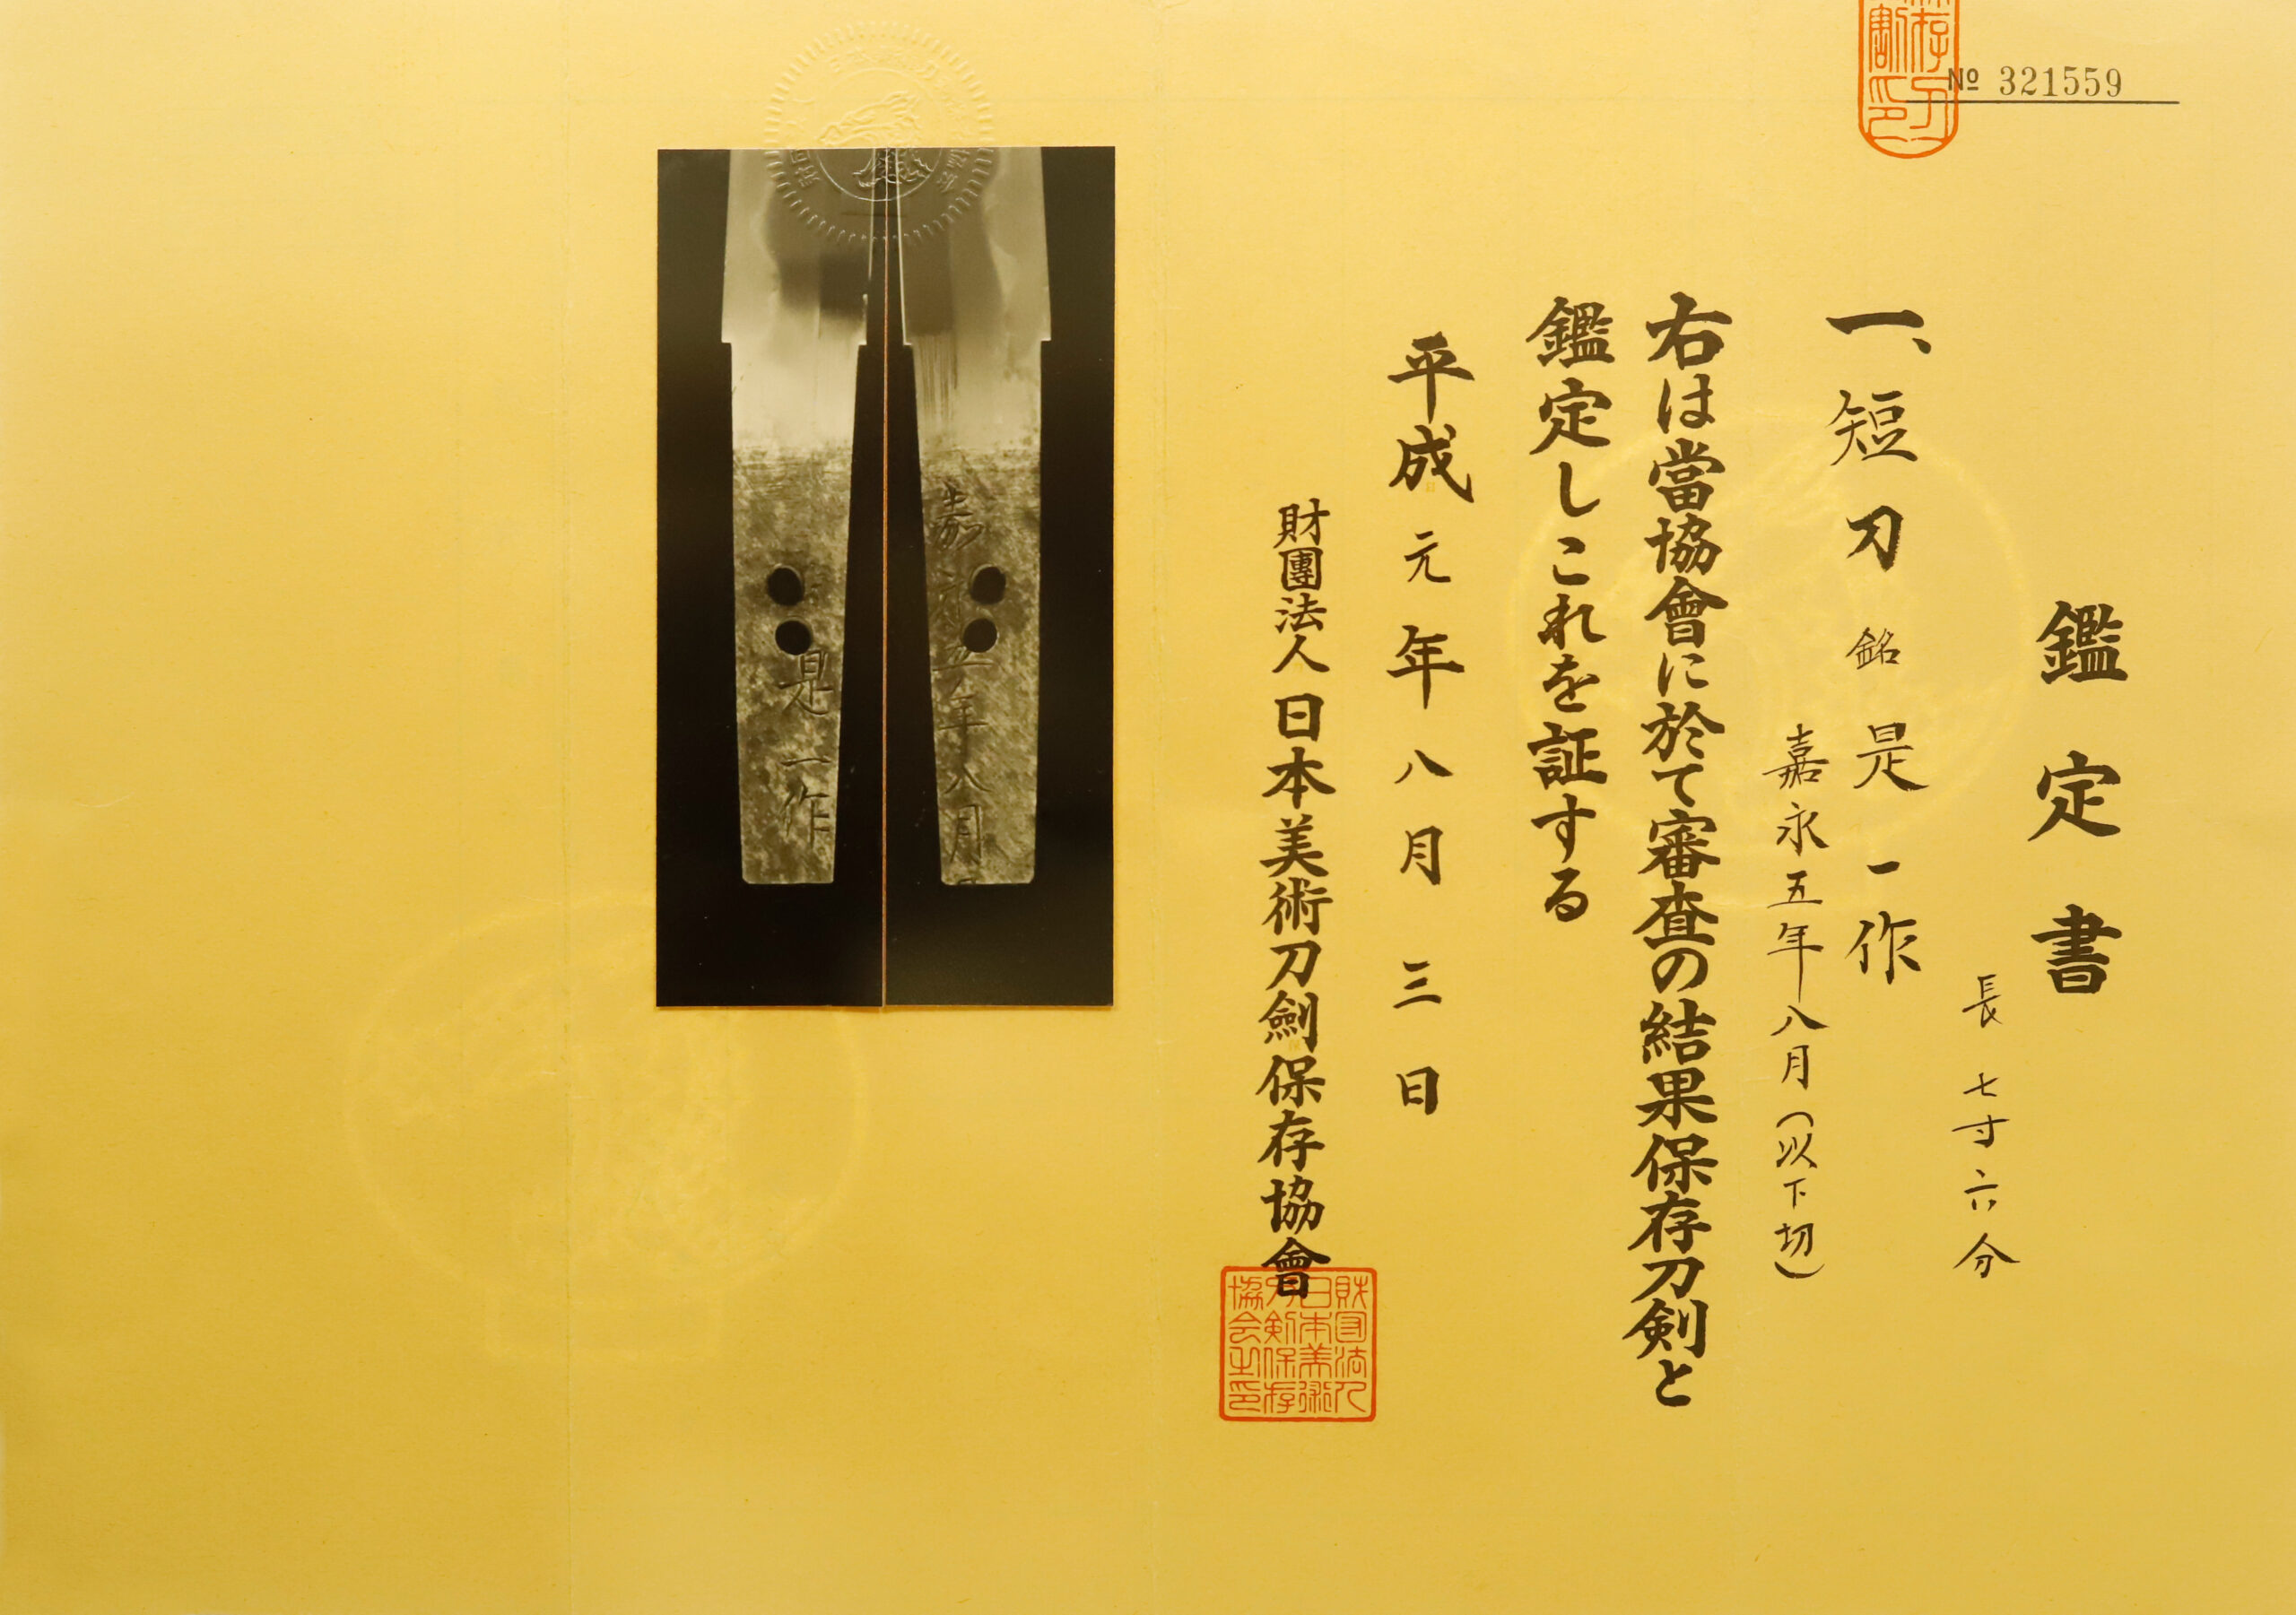 № 321559
鑑定書
長 七寸六分
一、短刀 銘 是一作
嘉永五年八月(以下切)
右は當協會に於て審査の結果保存刀剣と
鑑定しこれを証する
平成元年八月三日
財團法人 日本美術刀劍保存協會
財団法人
日本美術
刀剣保存
協会之印
嘉永五年八月
是一作